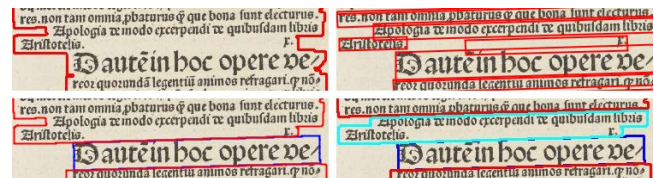 res.non tam omnia ꝓbaturus q̃ que bona sunt electurus.
Apologia de modo excerpendi de quibusdam libris
Aristotelis. x.
D autẽ in hoc opere ve/
reor quorundã legentiũ animos refragari. ꝙ nõ
res.non tam omnia ꝓbaturus q̃ que bona sunt electurus.
Apologia de modo excerpendi de quibusdam libris
Aristotelis. x.
D autẽ in hoc opere ve/
reor quorundã legentiũ animos refragari. ꝙ nõ
res.non tam omnia ꝓbaturus q̃ que bona sunt electurus.
Apologia de modo excerpendi de quibusdam libris
Aristotelis. x.
D autẽ in hoc opere ve/
reor quorundã legentiũ animos refragari. ꝙ nõ
res.non tam omnia ꝓbaturus q̃ que bona sunt electurus.
Apologia de modo excerpendi de quibusdam libris
Aristotelis. x.
D autẽ in hoc opere ve/
reor quorundã legentiũ animos refragari. ꝙ nõ